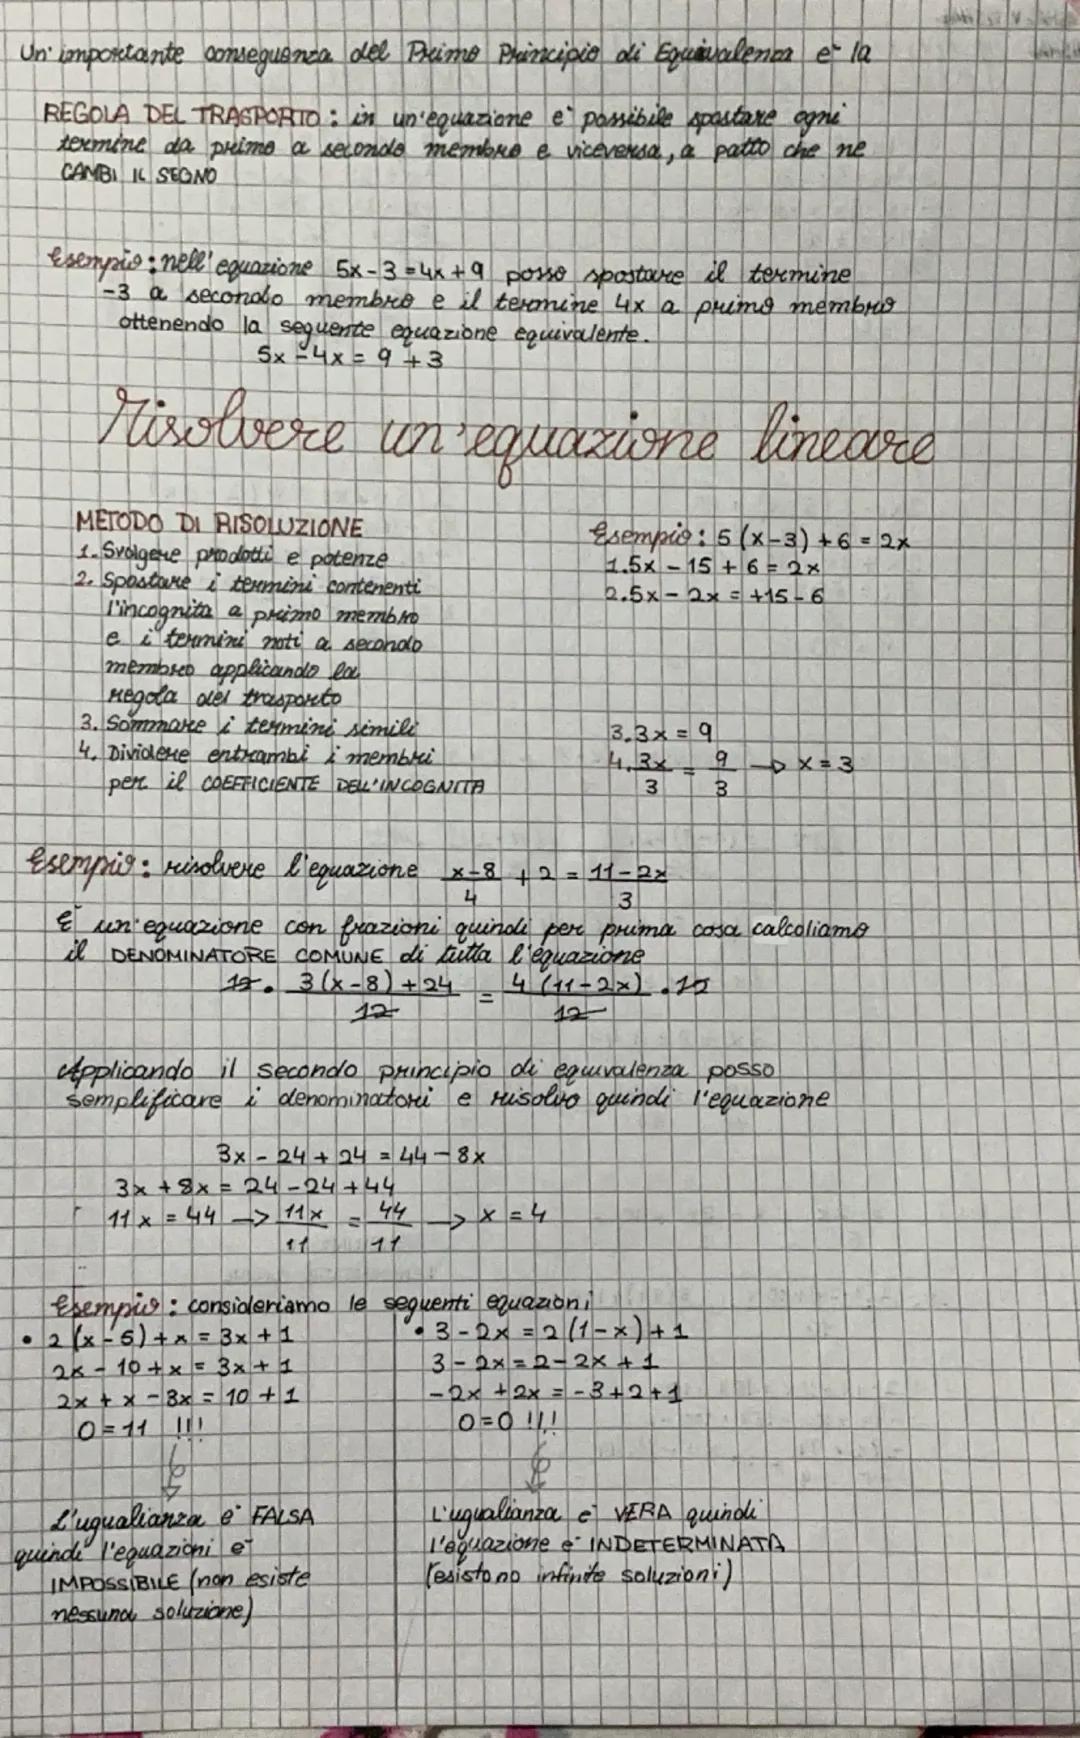 Un'importante conseguenza del Primo Principio di Equivalenza e' la
REGOLA DEL TRASPORTO: in un'equazione e' possibile spostare ogni
termine da primo a secondo membro e viceversa, a patto che ne
CAMBI IL SEGNO
Esempio: nell'equazione 5x-3=4x+9 posso spostare il termine
-3 a secondo membro e il termine 4x a primo membro
ottenendo la seguente equazione equivalente.
5x-4x=9+3
Risolvere un'equazione lineare
METODO DI RISOLUZIONE
1. Svolgere prodotti e potenze
2. Spostare i termini contenenti
l'incognita a primo membro
e i termini noti a secondo
membro applicando la
regola del trasporto
3. Sommare i termini simili
4. Dividere entrambi i membri
per il COEFFICIENTE DELL'INCOGNITA
Esempio: 5(x-3)+6=2x
1.5x-15+6=2x
2.5x-2x=+15-6
3.3x=9
4.3x/3=9/3→x=3
Esempio: risolvere l'equazione x-8/4+2=11-2x/3
E' un'equazione con frazioni quindi per prima cosa calcoliamo
il DENOMINATORE COMUNE di tutta l'equazione
12. 3(x-8)+24/12=4(11-2x)/12.12
Applicando il secondo principio di equivalenza posso
semplificare i denominatori e risolvo quindi l'equazione
3x-24+24=44-8x
3x+8x=24-24+44
11x=44→11x/11=44/11→x=4
Esempio: consideriamo le seguenti equazioni
• 2(x-5)+x=3x+1
2x-10+x=3x+1
2x+x-3x=10+1
0=11 !!!
L'uguaglianza e' FALSA
quindi l'equazioni e'
IMPOSSIBILE (non esiste
nessuna soluzione)
• 3-2x=2(1-x)+1
3-2x=2-2x+1
-2x+2x=-3+2+1
0=0 !!!
L'ugualianza e' VERA quindi
l'equazione e' INDETERMINATA
(esistono infinite soluzioni)